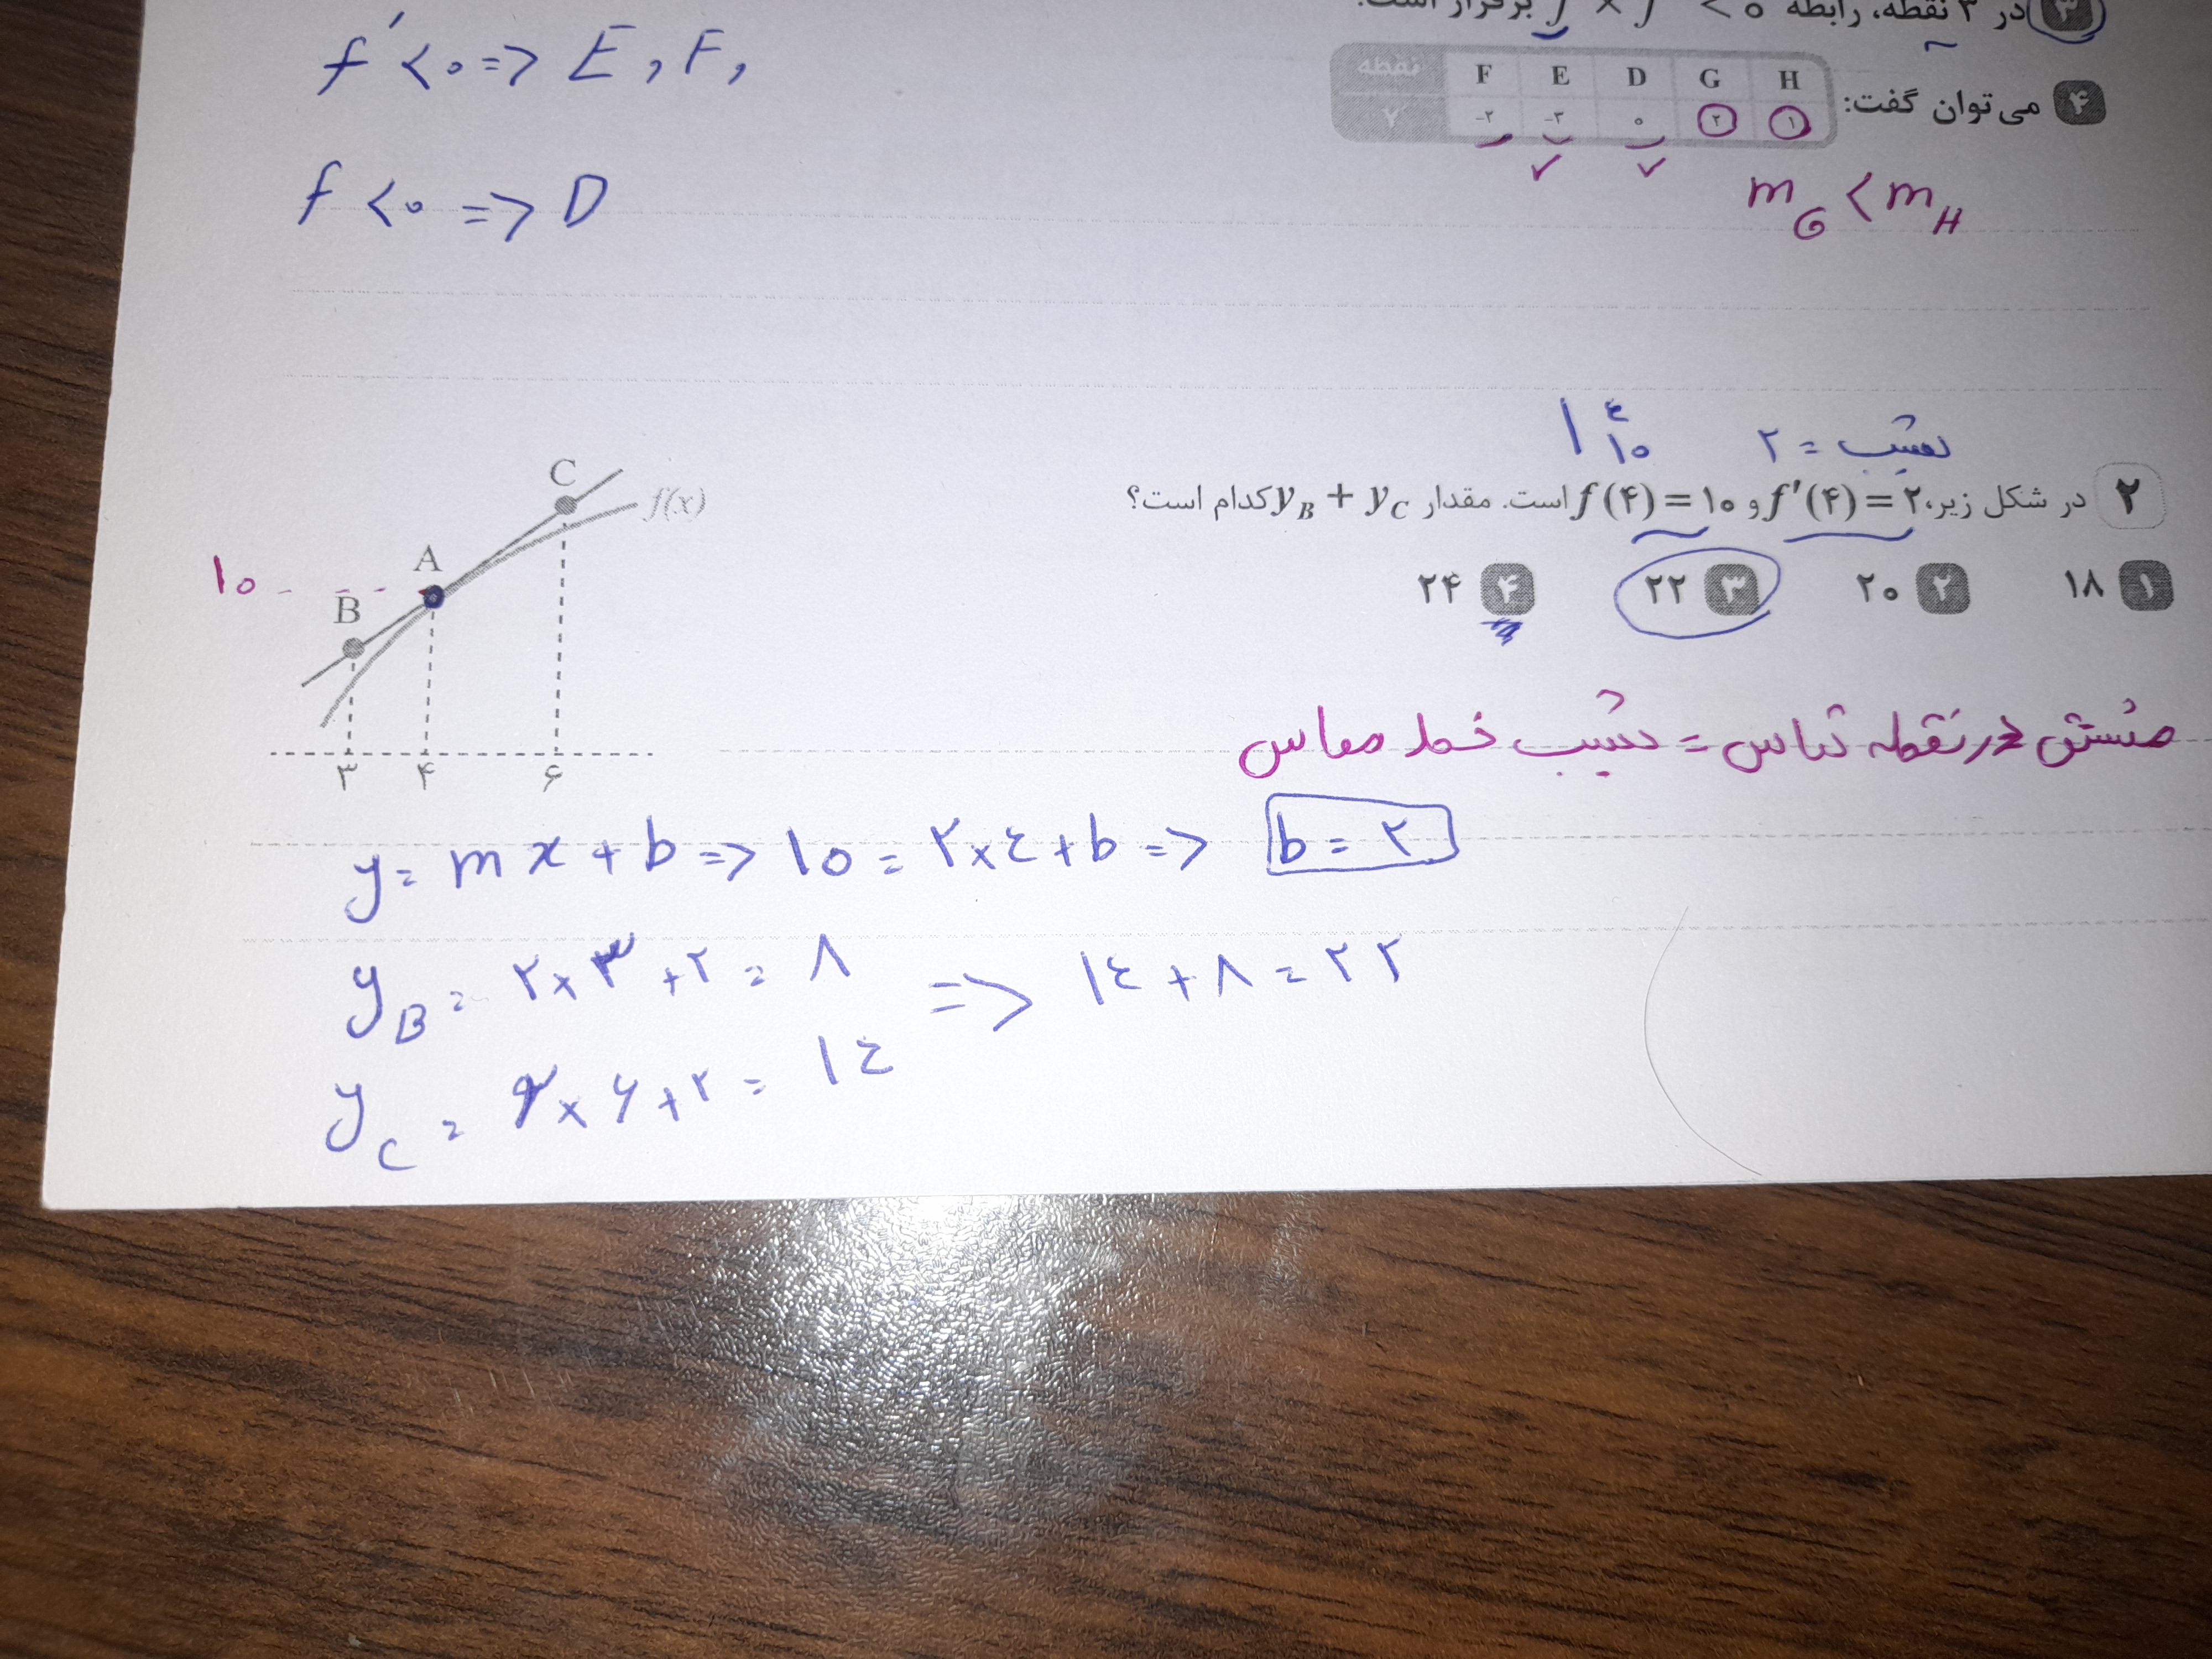 در ۳ نقطه، رابطه < ۰ برقرار است.
f' < ۰ => E, F,
۴ می‌توان گفت:
نقطه F E D G H
-۲ -۳ ۰ ۲ ۱
f < ۰ => D
m_G < m_H
شیب = ۲
۴
۱۰
۲ در شکل زیر، f'(۴) = ۲ و f(۴) = ۱۰ است. مقدار y_B + y_C کدام است؟
۱ ۱۸ ۲ ۲۰ ۳ ۲۲ ۴ ۲۴
C
f(x)
A
۱۰
B
۳ ۴ ۶
مشتق در نقطه تماس = شیب خط مماس
y = mx + b => ۱۰ = ۲×۴+b => b = ۲
y_B = ۲×۳+۲ = ۸ => ۱۴+۸=۲۲
y_C = ۲×۶+۲ = ۱۴